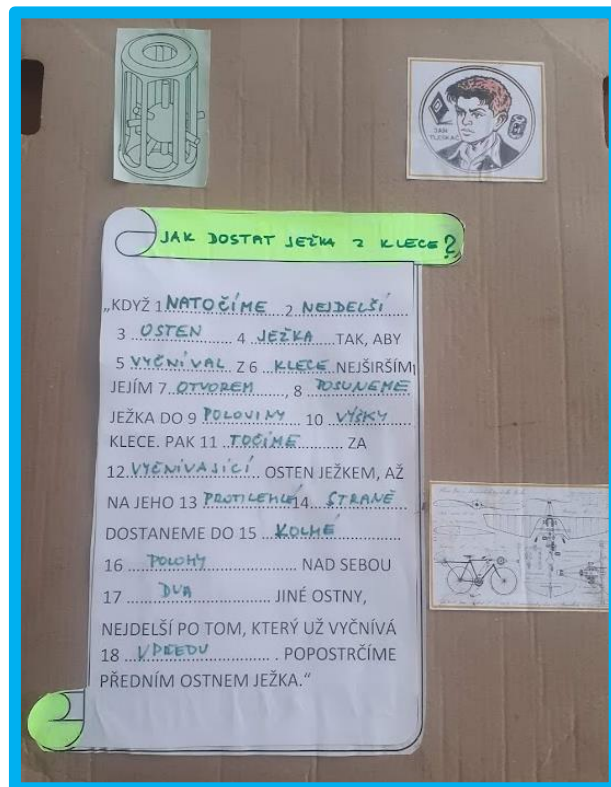 JAN
TLESKAČ
JAK DOSTAT JEŽKA Z KLECE?
„KDYŽ 1 NATOČÍME 2 NEJDELŠÍ
3 OSTEN 4 JEŽKA TAK, ABY
5 VYČNÍVAL Z 6 KLECE NEJŠIRŠÍM
JEJÍM 7 OTVOREM, 8 POSUNEME
JEŽKA DO 9 POLOVINY 10 VÝŠKY
KLECE. PAK 11 TOČÍME ZA
12 VYČNÍVAJÍCÍ OSTEN JEŽKEM, AŽ
NA JEHO 13 PROTILEHLÉ 14 STRANĚ
DOSTANEME DO 15 KOLMÉ
16 POLOHY NAD SEBOU
17 DVA JINÉ OSTNY,
NEJDELŠÍ PO TOM, KTERÝ UŽ VYČNÍVÁ
18 VPŘEDU. POPOSTRČÍME
PŘEDNÍM OSTNEM JEŽKA.“